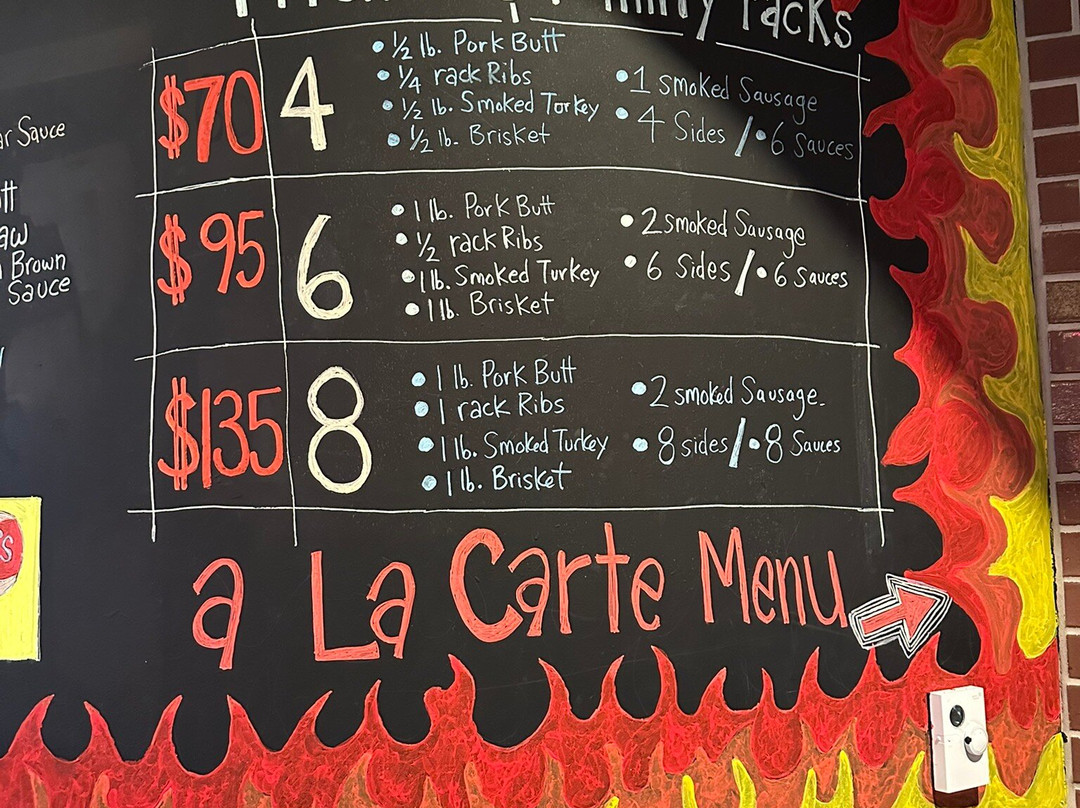 Packs
$70 4
• 1/2 lb. Pork Butt
• 1/4 rack Ribs
• 1/2 lb. Smoked Torkey
• 1/2 lb. Brisket
• 1 smoked Sausage
• 4 Sides / • 6 Sauces
$95 6
• 1 lb. Pork Butt
• 1/2 rack Ribs
• 1 lb. Smoked Turkey
• 1 lb. Brisket
• 2 smoked Sausage
• 6 Sides / • 6 Sauces
$135 8
• 1 lb. Pork Butt
• 1 rack Ribs
• 1 lb. Smoked Turkey
• 1 lb. Brisket
• 2 smoked Sausage
• 8 sides / • 8 Sauces
a La Carte Menu
Sauce
Brown
Sauce